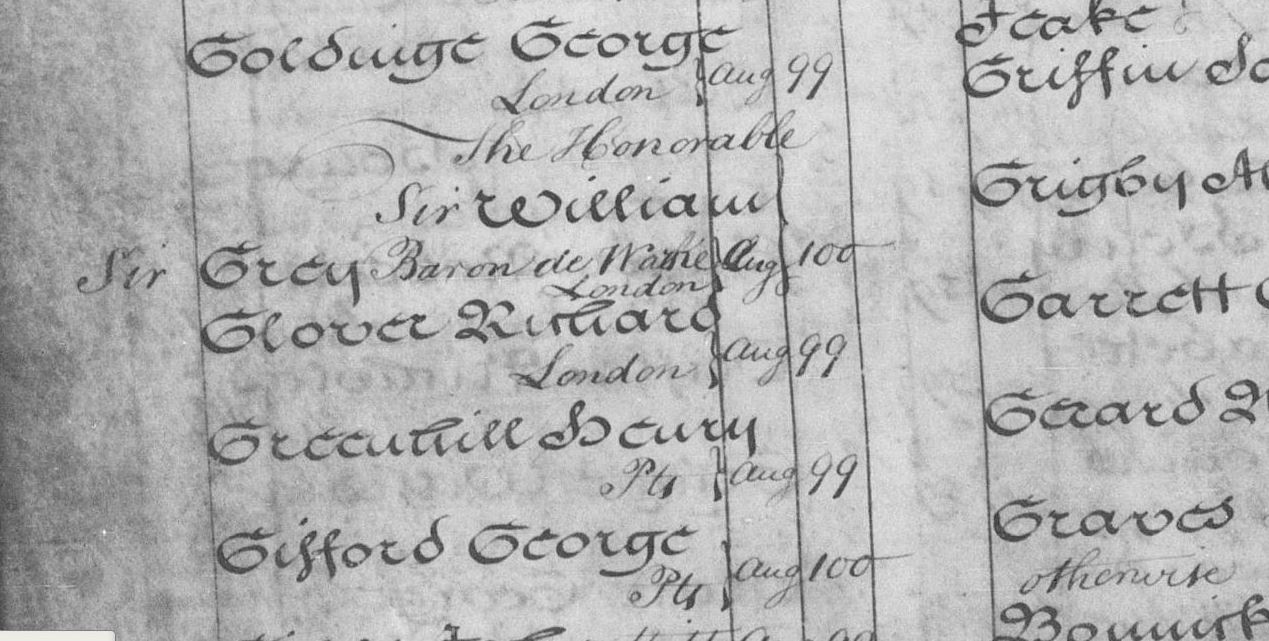 Goldwige George
London } Aug 99
The Honorable
Sir William
Sir Grey Baron de Warke } Aug 100
London
Glover Richard
London } Aug 99
Greenhill Henry
Pts } Aug 99
Gifford George
Pts } Aug 100
Feake
Griffin
Grigby
Garrett
Gerard
Graves
otherwise